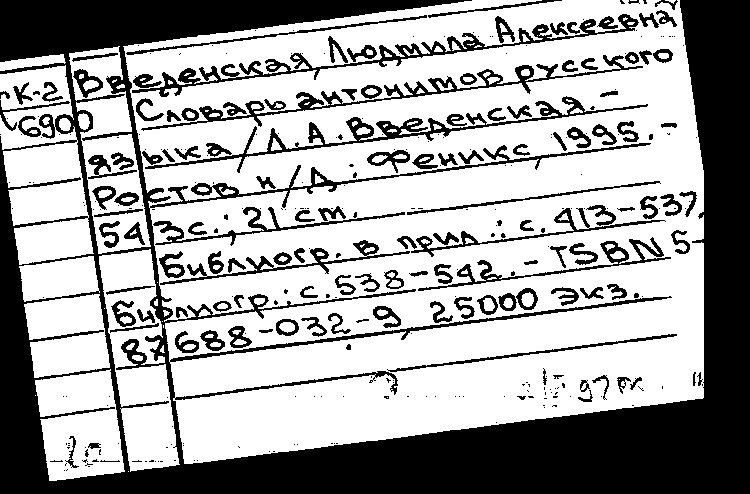 К-2 Введенская, Людмила Алексеевна
6900 Словарь антонимов русского
языка / Л. А. Введенская. –
Ростов н/Д : Феникс, 1995. –
543 с. ; 21 см.
Библиогр. в прил.: с. 413-537.
Библиогр.: с. 538-542. – ISBN 5-
87688-032-9, 25000 экз.
97
20